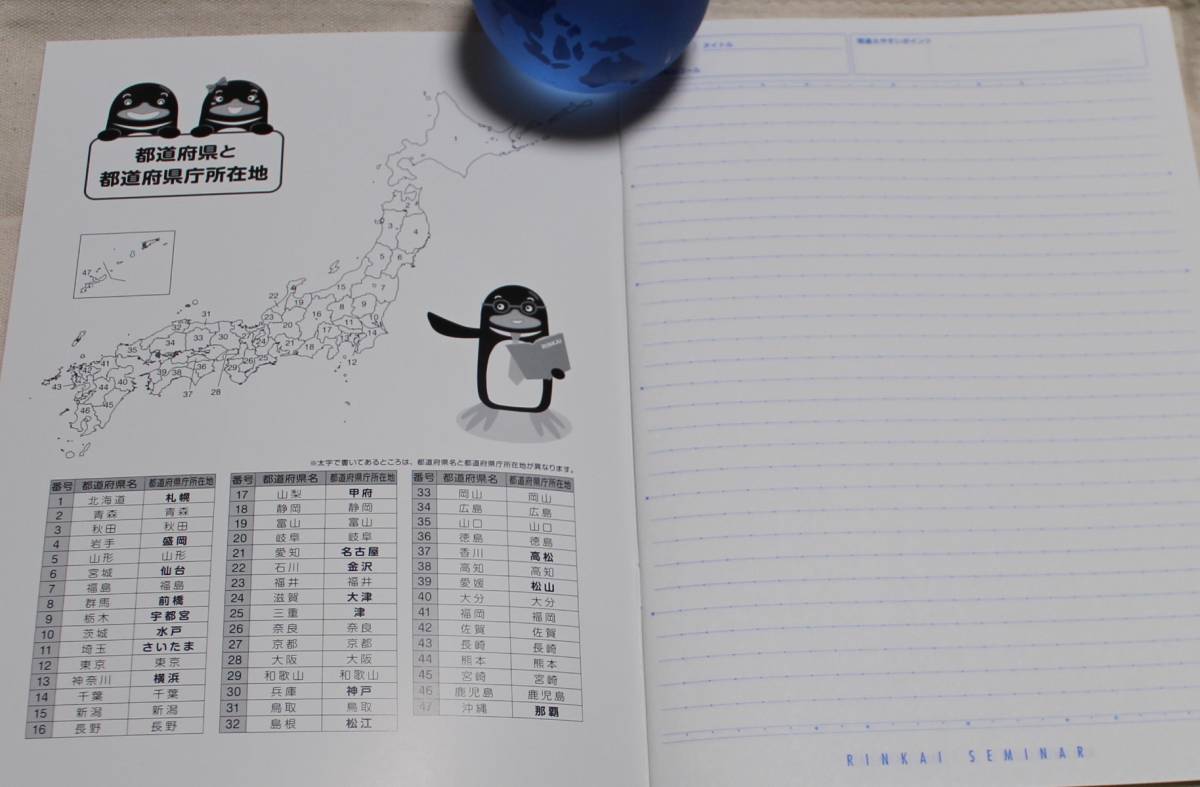 都道府県と
都道府県庁所在地
47
2
3
4
5
6
15
7
22
19
16
8
9
31
23
20
17
11
10
32
33
30
27
24
21
18
13
14
34
35
26
25
12
41
36
29
42
39
38
43
44
40
37
28
46
45
RINKAI
※太字で書いてあるところは、都道府県名と都道府県庁所在地が異なります。
番号 都道府県名 都道府県庁所在地
1 北海道 札幌
2 青森 青森
3 秋田 秋田
4 岩手 盛岡
5 山形 山形
6 宮城 仙台
7 福島 福島
8 群馬 前橋
9 栃木 宇都宮
10 茨城 水戸
11 埼玉 さいたま
12 東京 東京
13 神奈川 横浜
14 千葉 千葉
15 新潟 新潟
16 長野 長野
番号 都道府県名 都道府県庁所在地
17 山梨 甲府
18 静岡 静岡
19 富山 富山
20 岐阜 岐阜
21 愛知 名古屋
22 石川 金沢
23 福井 福井
24 滋賀 大津
25 三重 津
26 奈良 奈良
27 京都 京都
28 大阪 大阪
29 和歌山 和歌山
30 兵庫 神戸
31 鳥取 鳥取
32 島根 松江
番号 都道府県名 都道府県庁所在地
33 岡山 岡山
34 広島 広島
35 山口 山口
36 徳島 徳島
37 香川 高松
38 高知 高知
39 愛媛 松山
40 大分 大分
41 福岡 福岡
42 佐賀 佐賀
43 長崎 長崎
44 熊本 熊本
45 宮崎 宮崎
46 鹿児島 鹿児島
47 沖縄 那覇
タイトル
間違えやすいポイント
RINKAI SEMINAR